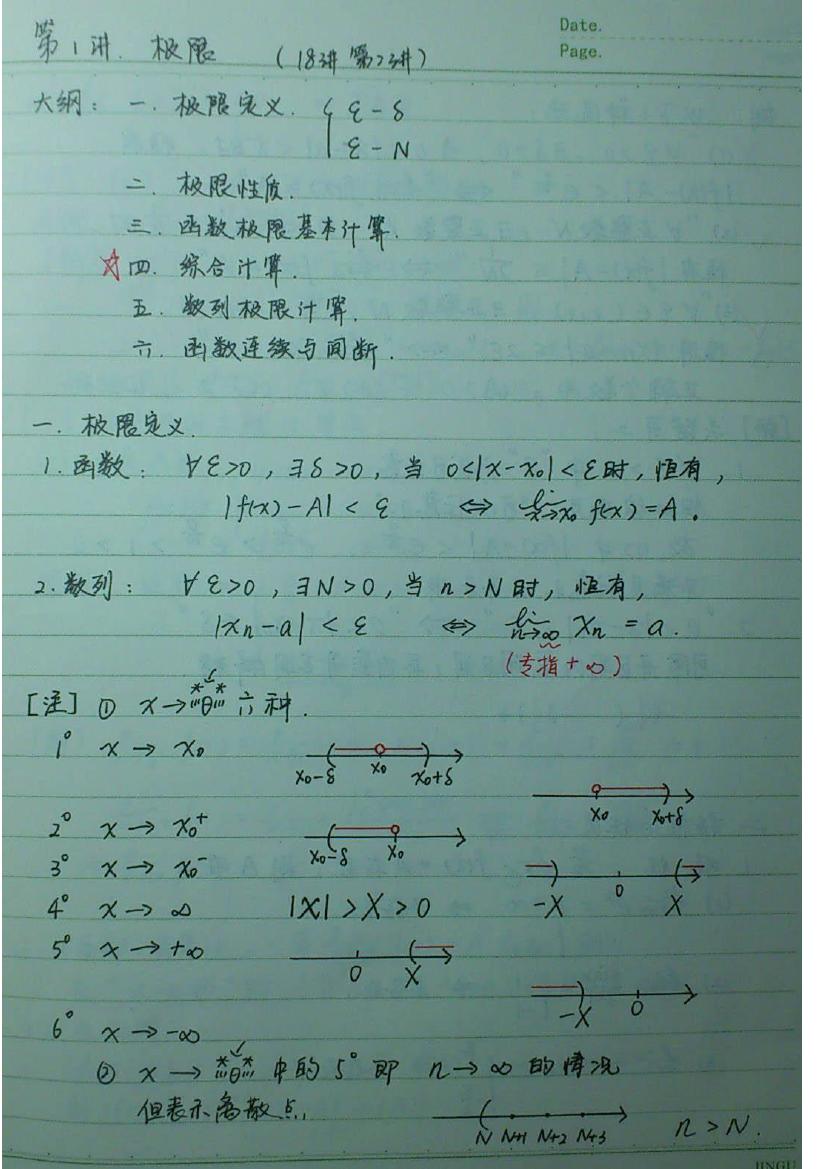 Date.
Page.
第1讲. 极限 (18讲 第2讲)
大纲: 一. 极限定义. { ε-δ
ε-N
二. 极限性质.
三. 函数极限基本计算.
☆四. 综合计算.
五. 数列极限计算.
六. 函数连续与间断.
一. 极限定义.
1. 函数: ∀ε>0, ∃δ>0, 当 0<|x-x₀|<ε时, 恒有,
|f(x)-A|<ε ⇔ lim x→x₀ f(x)=A.
2. 数列: ∀ε>0, ∃N>0, 当 n>N时, 恒有,
|xₙ-a|<ε ⇔ lim n→∞ xₙ=a.
(专指+∞)
[注] ① x→ 六种.
1° x→x₀
x₀-δ x₀ x₀+δ
x₀ x₀+δ
2° x→x₀⁺
x₀-δ x₀
3° x→x₀⁻
-X 0 X
4° x→∞ |x|>X>0
5° x→+∞
0 X
-X 0
6° x→-∞
② x→ 中的5° 即 n→∞的情况
但表示离散点,
N N+1 N+2 N+3 n>N.
JINGU